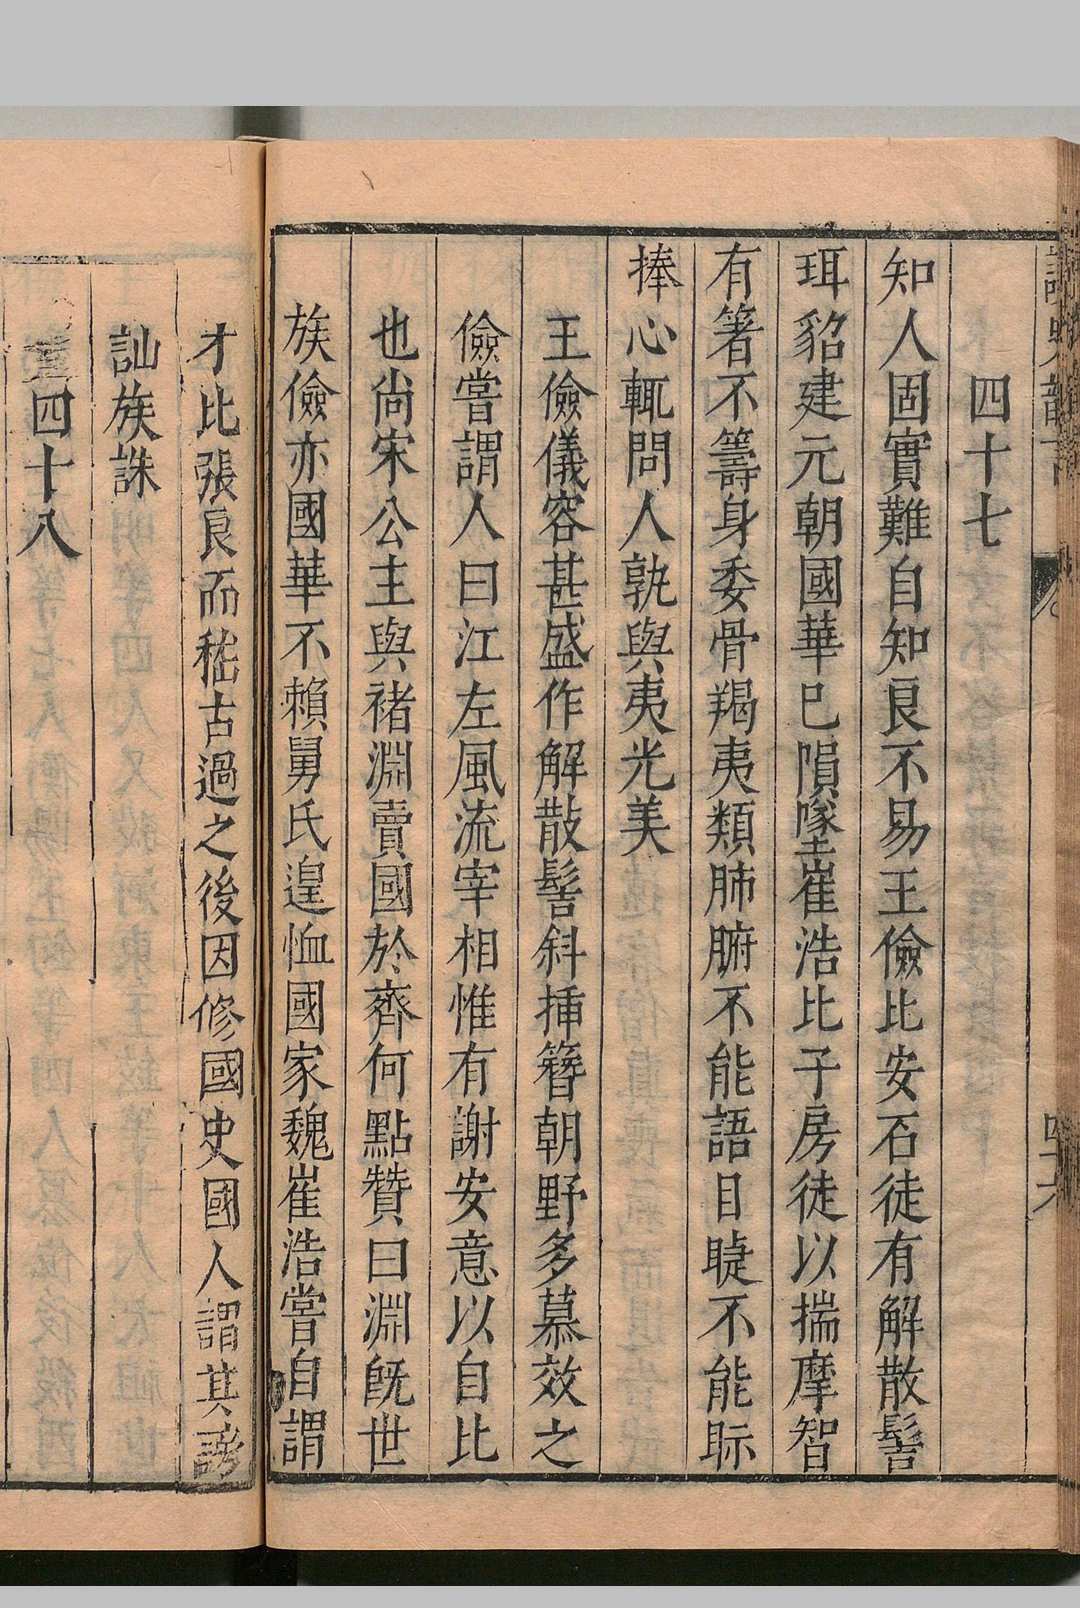 四十七
知人固實難自知良不易王儉比安石徒有解散髻
珥貂建元朝國華巳隕墜崔浩比子房徒以揣摩智
有箸不籌身委骨羯夷類肺腑不能語目睫不能眎
捧心輒問人孰與夷光美
王儉儀容甚盛作解散髻斜揷簪朝野多慕效之
儉嘗謂人曰江左風流宰相惟有謝安意以自比
也尚宋公主與褚淵賣國於齊何點贊曰淵旣世
族儉亦國華不賴舅氏遑恤國家魏崔浩嘗自謂
才比張良而稽古過之後因修國史國人謂其謗
訕族誅
四十八